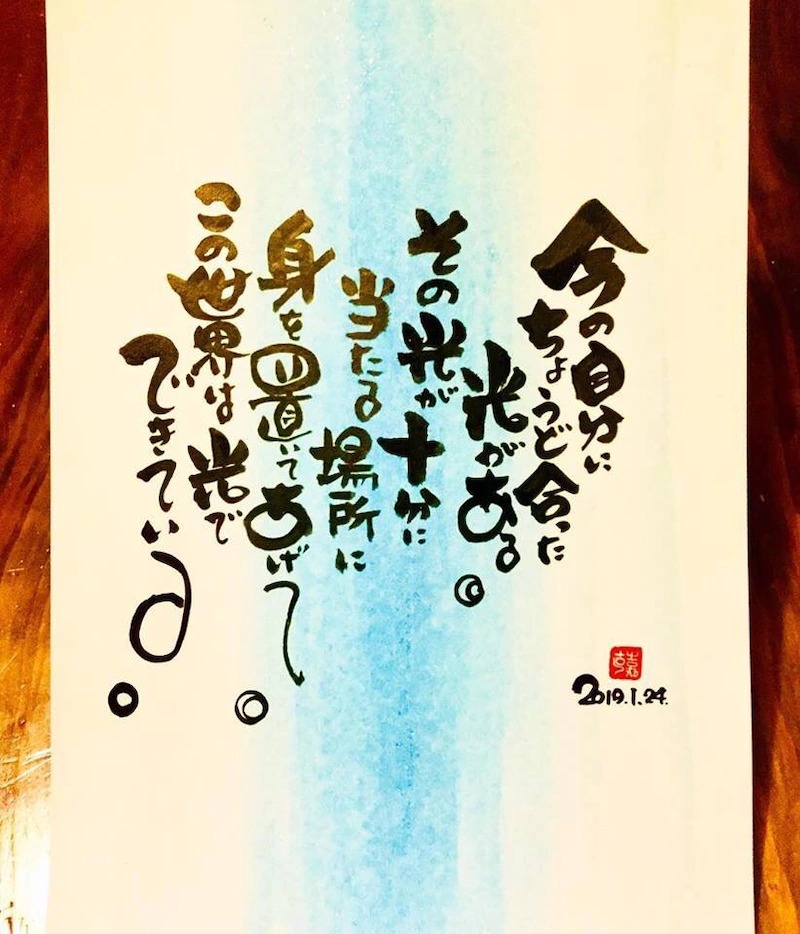 今の自分に
ちょうど合った
光がある。
その光が十分に
当たる場所に
身を置いてあげて。
この世界は光で
できている。
2019.1.24.